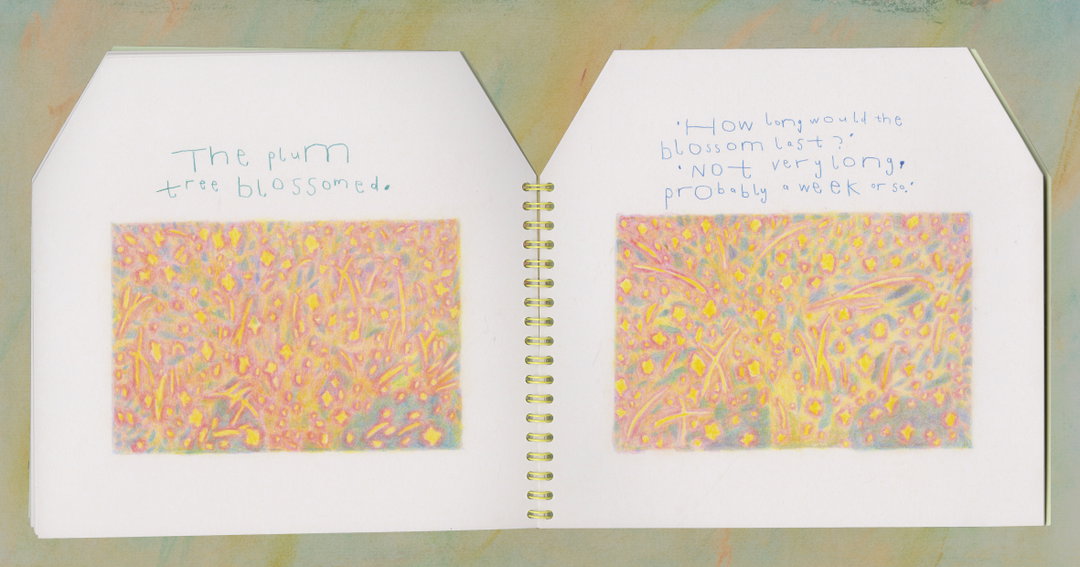 The plum
tree blossomed.
'How long would the
blossom last?'
'Not very long,
probably a week or so.'